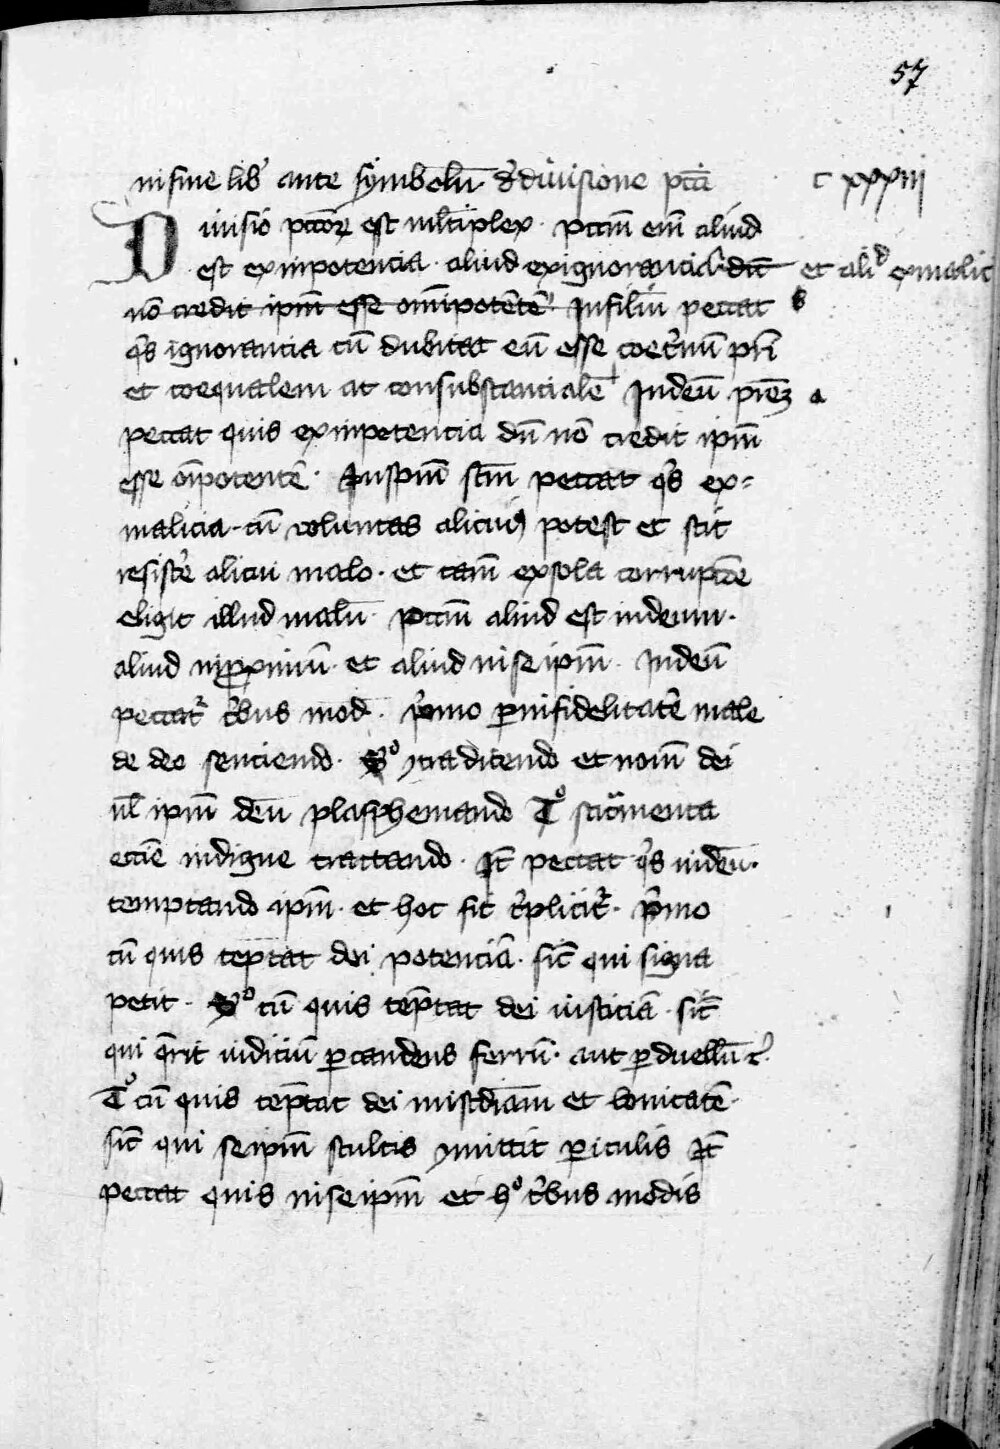 57
in fine libͥ ante symbolū de diuisione pctī c xxxiii
Diuisio pctōꝝ est ml̄tiplex · Pctm̄ em̄ aliud
est ex inpotencia · aliud ex ignorancia dū et aliᵈ ex malic
nō credit ipm̄ esse om̄ipotētē · In filiū peccat b
qͥs ignorancia cū dubitat eū esse coet̓nū pr̄i
et coequalem at consubstancialē In deū pr̄eꝫ a
peccat quis ex inpotencia dū nō credit ipm̄
esse oīpotentē · In spm̄ scm̄ peccat qͥs ex=
malicia · cū voluntas alicuiꝰ potest et scit
resist̓e alicui malo · et tam̄ ex sola corrupcōe
eligit illud malū · Pctm̄ aliud est in deum ·
aliud in ꝓximū · et aliud in se ipm̄ · In deū
peccat̓ tͥbus mod̄ · pͥmo ꝑ infidelitatē male
de deo senciendo · Sº ꝯtradicendo et nom̄ dei
ul̄ ipm̄ deū plasphemando Tº sacͣmenta
eccīe indigne tractando · Jt̄ peccat qͥs in deū ·
temptando ipm̄ · et hoc fit tͥplicit̓ · pͥmo
cū quis tēptat dei potenciā · sic̄ qui signa
petit · Sº cū quis tēptat dei iusticiā · sic̄
qui q̄rit iudiciū ꝑ candens ferrū · aut ꝑ duellū ⁊c̓
Tº cū quis tēptat dei mis̄cdiam et bonitatē ·
sic̄ qui se ipm̄ stultis ꝯmittit ꝑiculis Jt̄
peccat quis in se ipm̄ et hº tͥbus modis